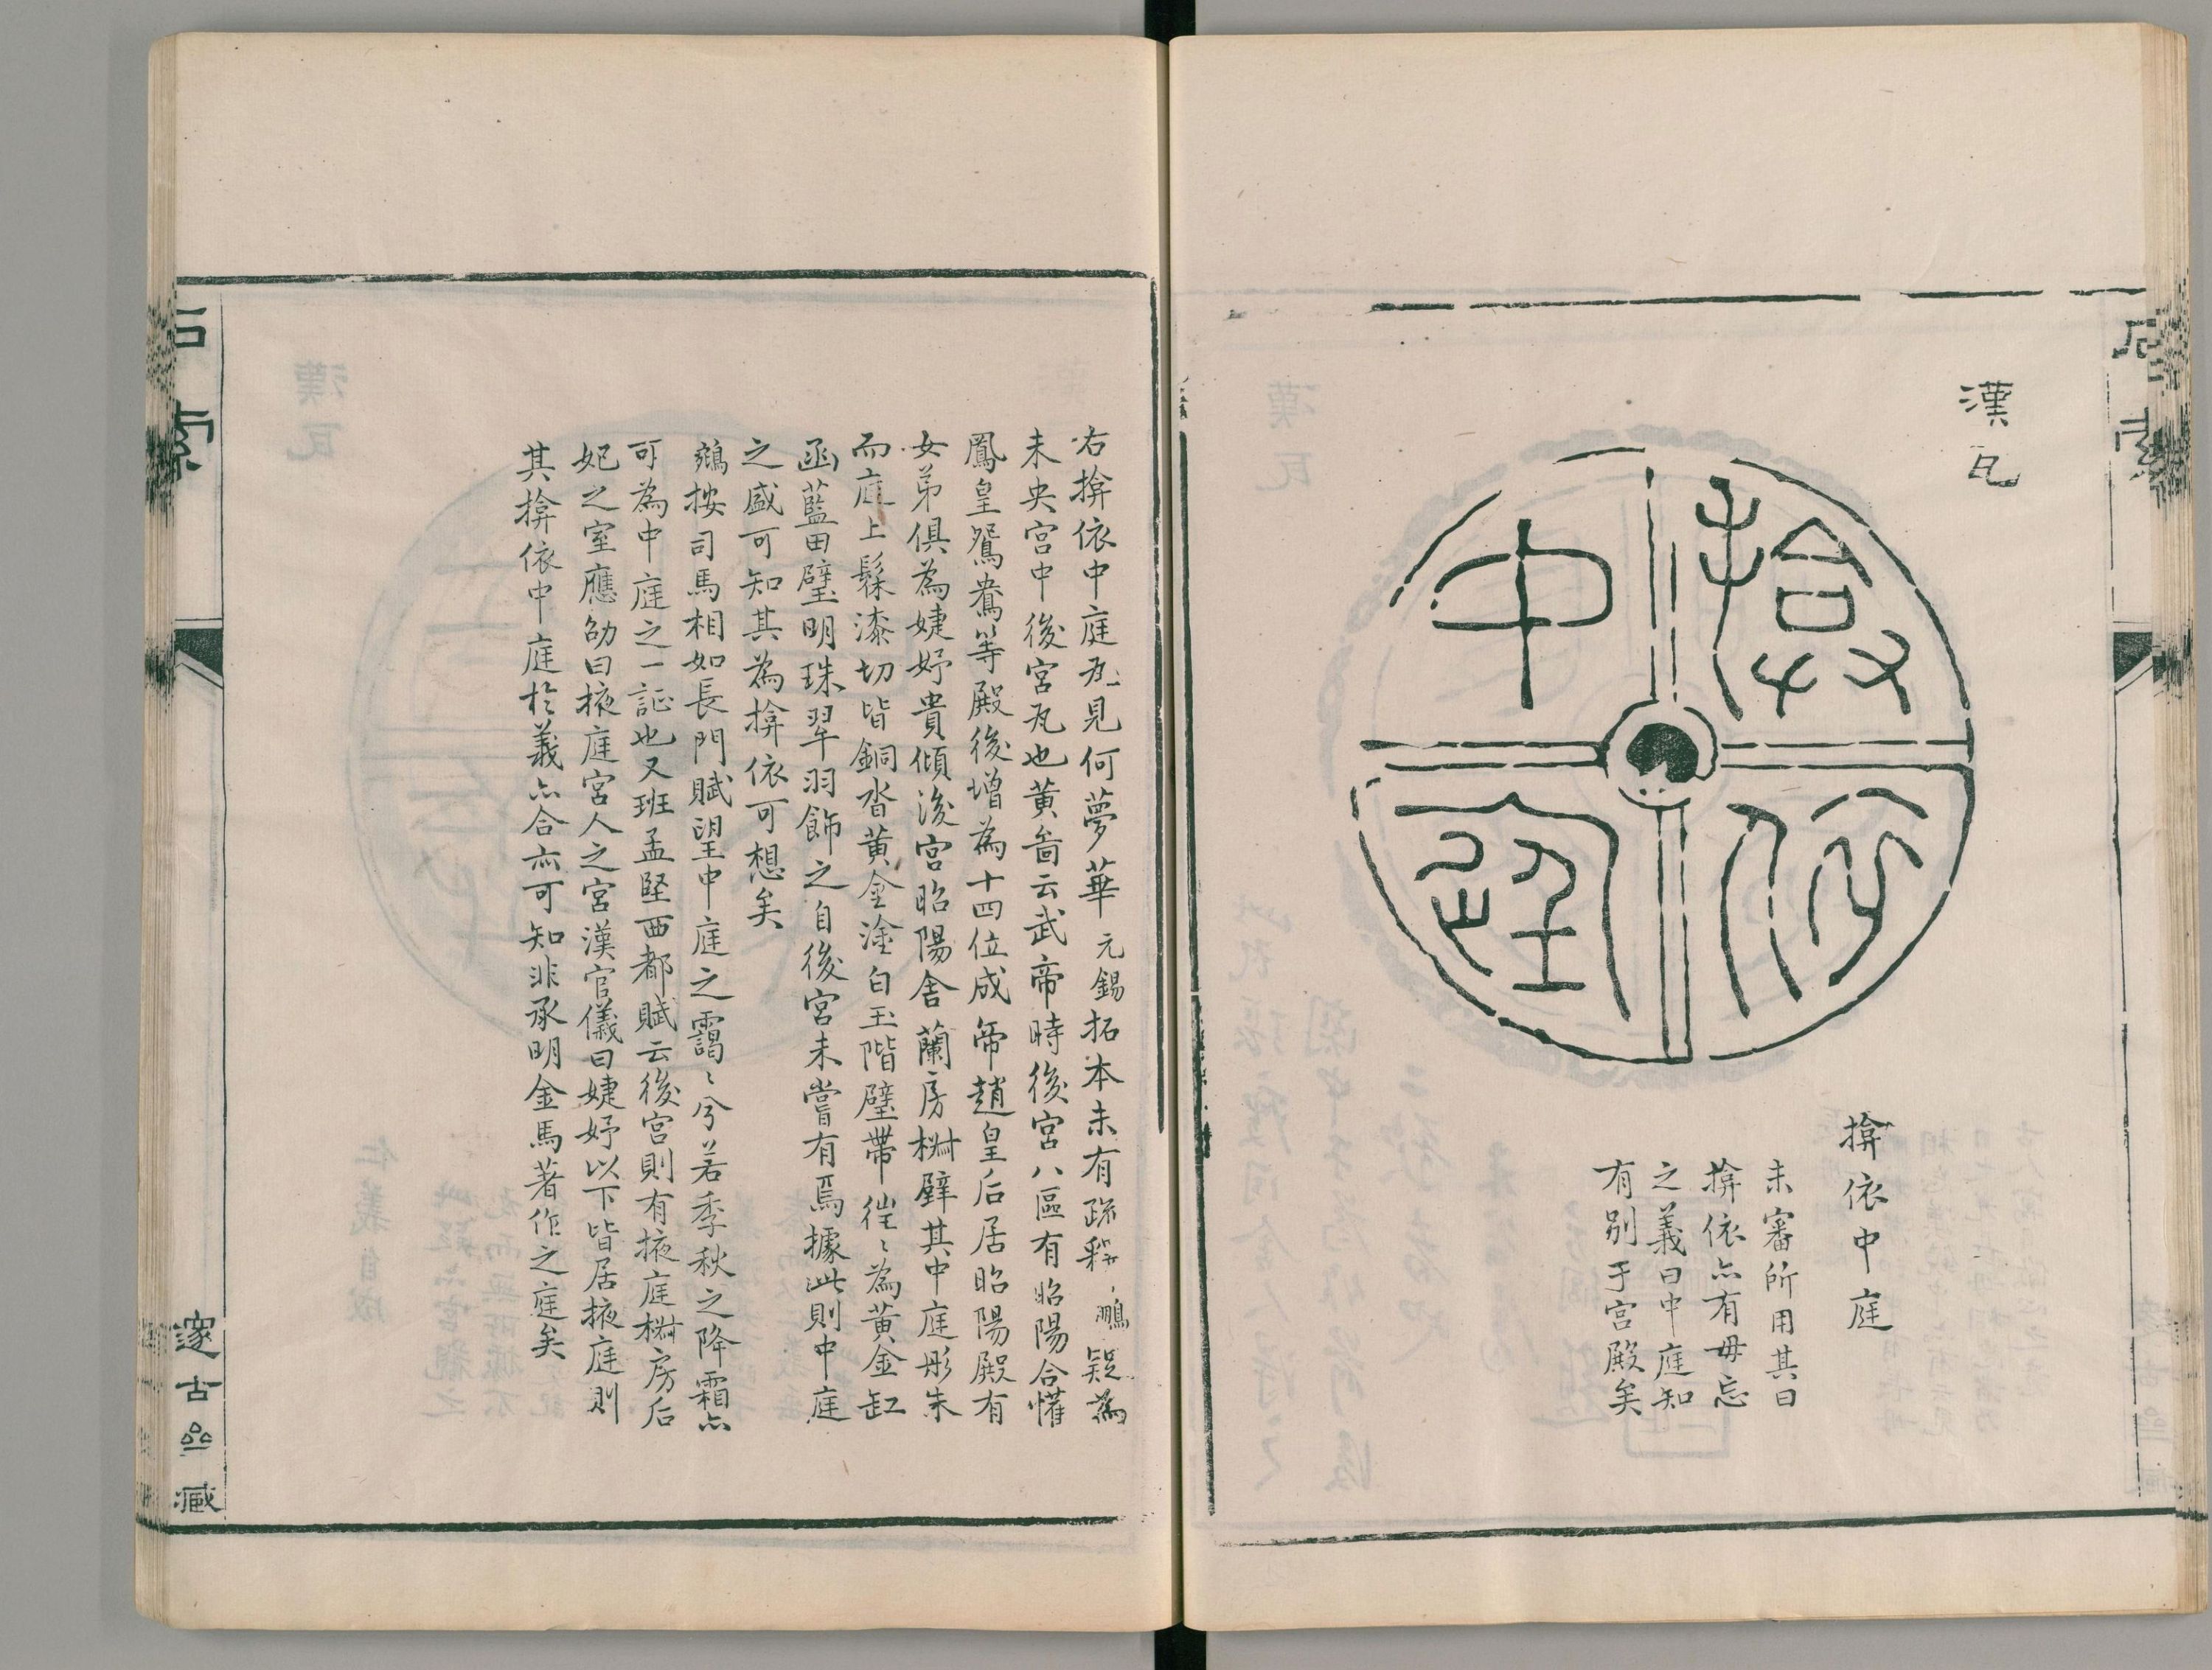 石索
漢瓦
揜依中庭
揜依中庭
未審所用其曰
揜依亦有毋忘
之義曰中庭知
有别于宫殿矣
右揜依中庭瓦見何夢華元錫拓本未有疏釋鵬疑為
未央宫中後宫瓦也黄圖云武帝時後宫八區有昭陽合懽
鳳皇鴛鴦等殿後增為十四位成帝趙皇后居昭陽殿有
女弟俱為婕妤貴傾後宫昭陽舍蘭房椒壁其中庭彤朱
而庭上髹漆切皆銅沓黄金塗白玉階壁帶徃〻為黄金缸
函藍田璧明珠翠羽飾之自後宫未嘗有焉據此則中庭
之盛可知其為揜依可想矣
鵷按司馬相如長門賦望中庭之靄〻兮若季秋之降霜亦
可為中庭之一証也又班孟堅西都賦云後宫則有掖庭椒房后
妃之室應劭曰掖庭宫人之宫漢官儀曰婕妤以下皆居掖庭則
其揜依中庭於義亦合亦可知非承明金馬著作之庭矣
石索
邃古齋藏